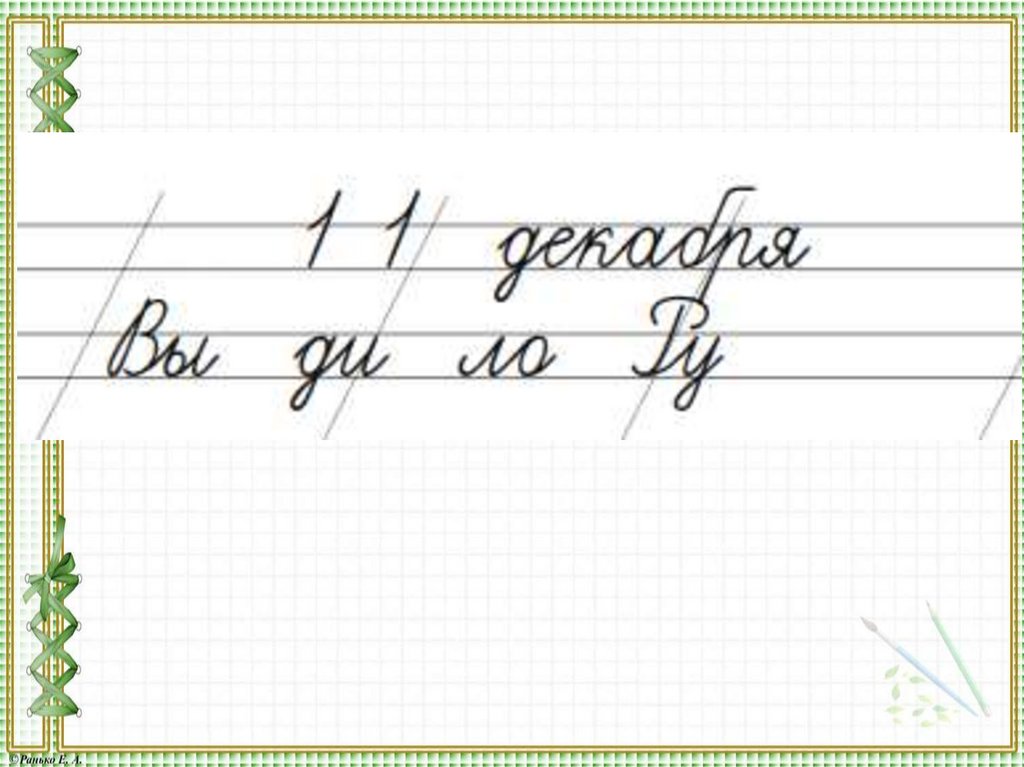 11 декабря
Вы ди ло Ру
©Ранько Е. А.